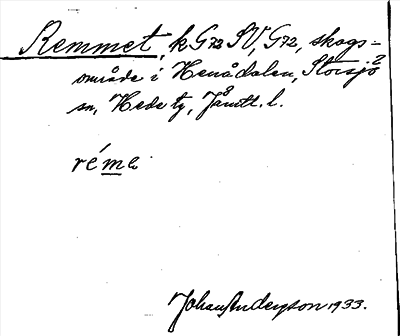 Remmet, k G72 SV, G72, skogs=
område i Henådalen, Storsjö 2
sn, Hede tg, Jämtl. l.
réme
Johan Anderson 1933.